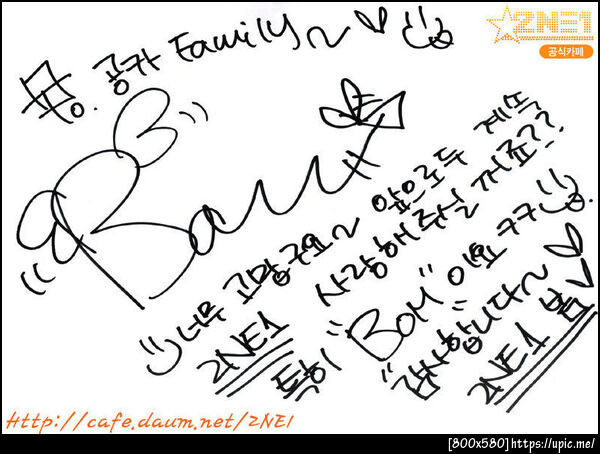 To. 공카 Family~
2NE1
공식카페
Bom
너무 고맙구요~ 앞으로두 계쏙
2NE1 사랑해주실꺼죠??
특히 "BOM" 이요 ㅋㅋ
감사합니다~
2NE1 봄
Http://cafe.daum.net/2NE1
[800x580] https://upic.me/